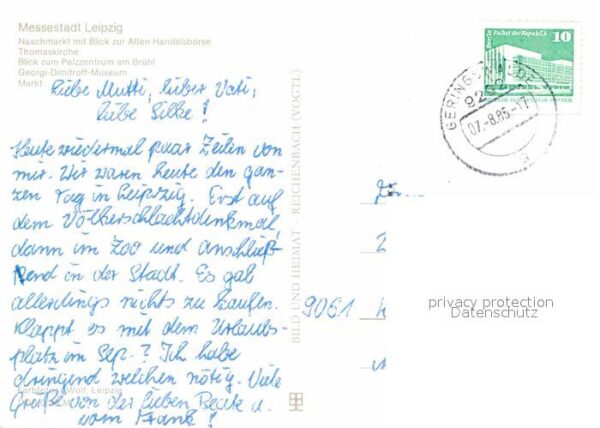 Messestadt Leipzig
Naschmarkt mit Blick zur Alten Handelsbörse
Thomaskirche
Blick zum Pelzzentrum am Brühl
Georgi-Dimitroff-Museum
Markt
Liebe Mutti, lieber Vati,
liebe Silke!
Heute wiedermal paar Zeilen von
mir. Wir waren heute den gan-
zen Tag in Leipzig. Erst auf
dem Völkerschlachtdenkmal,
dann im Zoo und anschließ-
end in der Stadt. Es gab
allerdings nichts zu kaufen.
Klappt es mit dem Urlaubs-
platz im Sep.? Ich habe
dringend welchen nötig. Viele
Grüße von der lieben Beate u.
vom Frank!
Farbfotos: Wolf, Leipzig
BILD UND HEIMAT · REICHENBACH (VOGTL)
Berlin Palast der Republik
10
GERINGSWALDE
07.-8.85-17
a
9061
privacy protection
Datenschutz